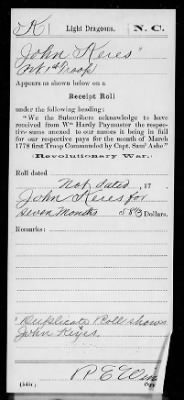 K | Light Dragoons. | N. C.
John Keres
Pvt 1st Troop
Appears as shown below on a
Receipt Roll
under the following heading:
"We the Subscribers acknowledge to have
received from Wm Hardy Paymaster the respec-
tive sums annexed to our names it being in full
for our respective pays for the month of March
1778 first Troop Commanded by Capt. Saml Ashe"
(Revolutionary War.)
Roll dated
Not dated, 17
John Keres for
Seven Months 58 1/3 Dollars.
Remarks:
Duplicate Roll shows
John Keyes.